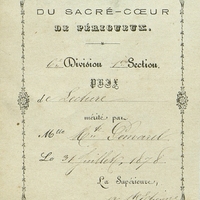 DU SACRÉ-CŒUR
DE PÉRIGUEUX.
6e Division 1re Section.
PRIX
de Lecture
mérité par
Mlle
Le 31 Juillet 1878
La Supérieure,